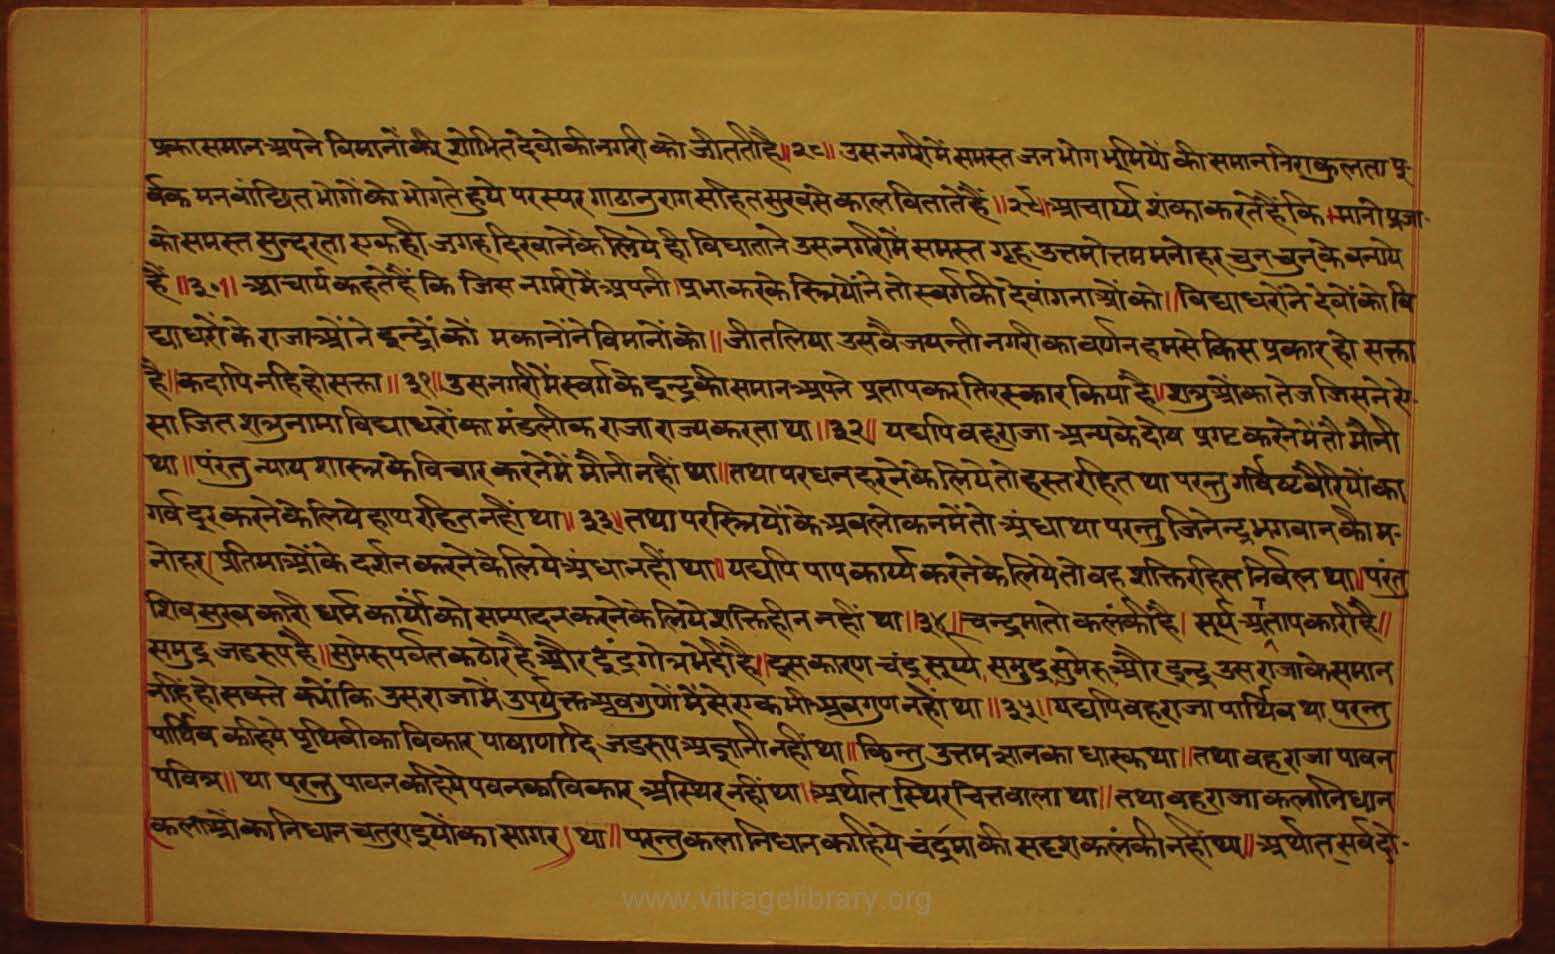 प्रकासमान अपने विमानों कर शोभित देवो की नगरी को जीतती है॥२८॥ उस नगरी में समस्त जन भोग भूमियों की समान निराकुलता पू-
र्वक मन वांछित भोगों को भोगते हुये परस्पर गाढानुराग सहित सुखसे काल विताते हैं॥२९॥ आचार्य्य शंका करते हैं कि। मानो प्रजा-
को समस्त सुन्दरता एक ही जगह दिखाने के लिये ही विधाता ने उस नगरी में समस्त गृह उत्तमोत्तम मनोहर चुन चुन के वनाये
हैं॥३०॥ आचार्य कहते हैं कि जिस नगरी में अपनी। प्रभा करके स्त्रियों ने तो स्वर्ग की देवांगनाओं को॥ विद्याधरों ने देवों को वि
द्याधरों के राजाओं ने इन्द्रों कों मकानों ने विमानों को॥ जीत लिया उस वैजयन्ती नगरी का वर्णन हमसे किस प्रकार हो सक्ता
है॥ कदापि नहि हो सक्ता॥३१॥ उस नगरी में स्वर्ग के इन्द्र की समान अपने प्रताप कर तिरस्कार किया है॥ शत्रुओं का तेज जिसने ऐ-
सा जित शत्रु नामा विद्याधरों का मंडलीक राजा राज्य करता था॥३२॥ यद्यपि वह राजा अन्य के दोष प्रगट करने में तौ मौनी
था॥ परंतु न्याय शास्त्र के विचार करने में मौनी नहीं था॥ तथा परधन हरने के लिये तो हस्त रहित था परन्तु गर्विष्ट वैरियों का
गर्व दूर करने के लिये हाथ रहित नहीं था॥३३॥ तथा परस्त्रियों के अवलोकन में तो अंधा था परन्तु जिनेन्द्र भगवान कै म-
नोहर। प्रतिमाओं के दर्शन करने के लिये अंधा नहीं था॥ यद्यपि पाप कार्य्य करने के लिये तो वह शक्ति रहित निर्वल था॥ परंतु
शिव सुख कारी धर्म कार्यों को सम्पादन करने के लिये शक्ति हीन नहीं था॥३४॥ चन्द्रमा तो कलंकी है। सूर्य प्रताप कारी है॥
समुद्र जडरूप है॥ सुमेरु पर्वत कठोर है और इंद्र गोत्र भेदी है॥ इस कारण चंद्र सूर्य्य समुद्र सुमेरु और इन्द्र उस राजा के समान
नहिं हो सक्ते क्यों कि उस राजा में उपर्युक्त अवगुणों में से एक भी अवगुण नहीं था॥३५॥ यद्यपि वह राजा पार्थिव था परन्तु
पार्थिव कहिये पृथिवी का विकार पाषाणादि जडरूप अज्ञानी नहीं था॥ किन्तु उत्तम ज्ञान का धारक था॥ तथा वह राजा पावन
पवित्र॥ था परन्तु पावन कहिये पवन का विकार अस्थिर नहीं था॥ अर्थात् स्थिर चित्त वाला था॥ तथा वह राजा कलानिधान
(कलाओं का निधान चतुराइयों का सागर) था॥ परन्तु कला निधान कहिये चंद्रमा की सदृश कलंकी नहीं था॥ अर्थात् सर्व दो-
www.vitragelibrary.org